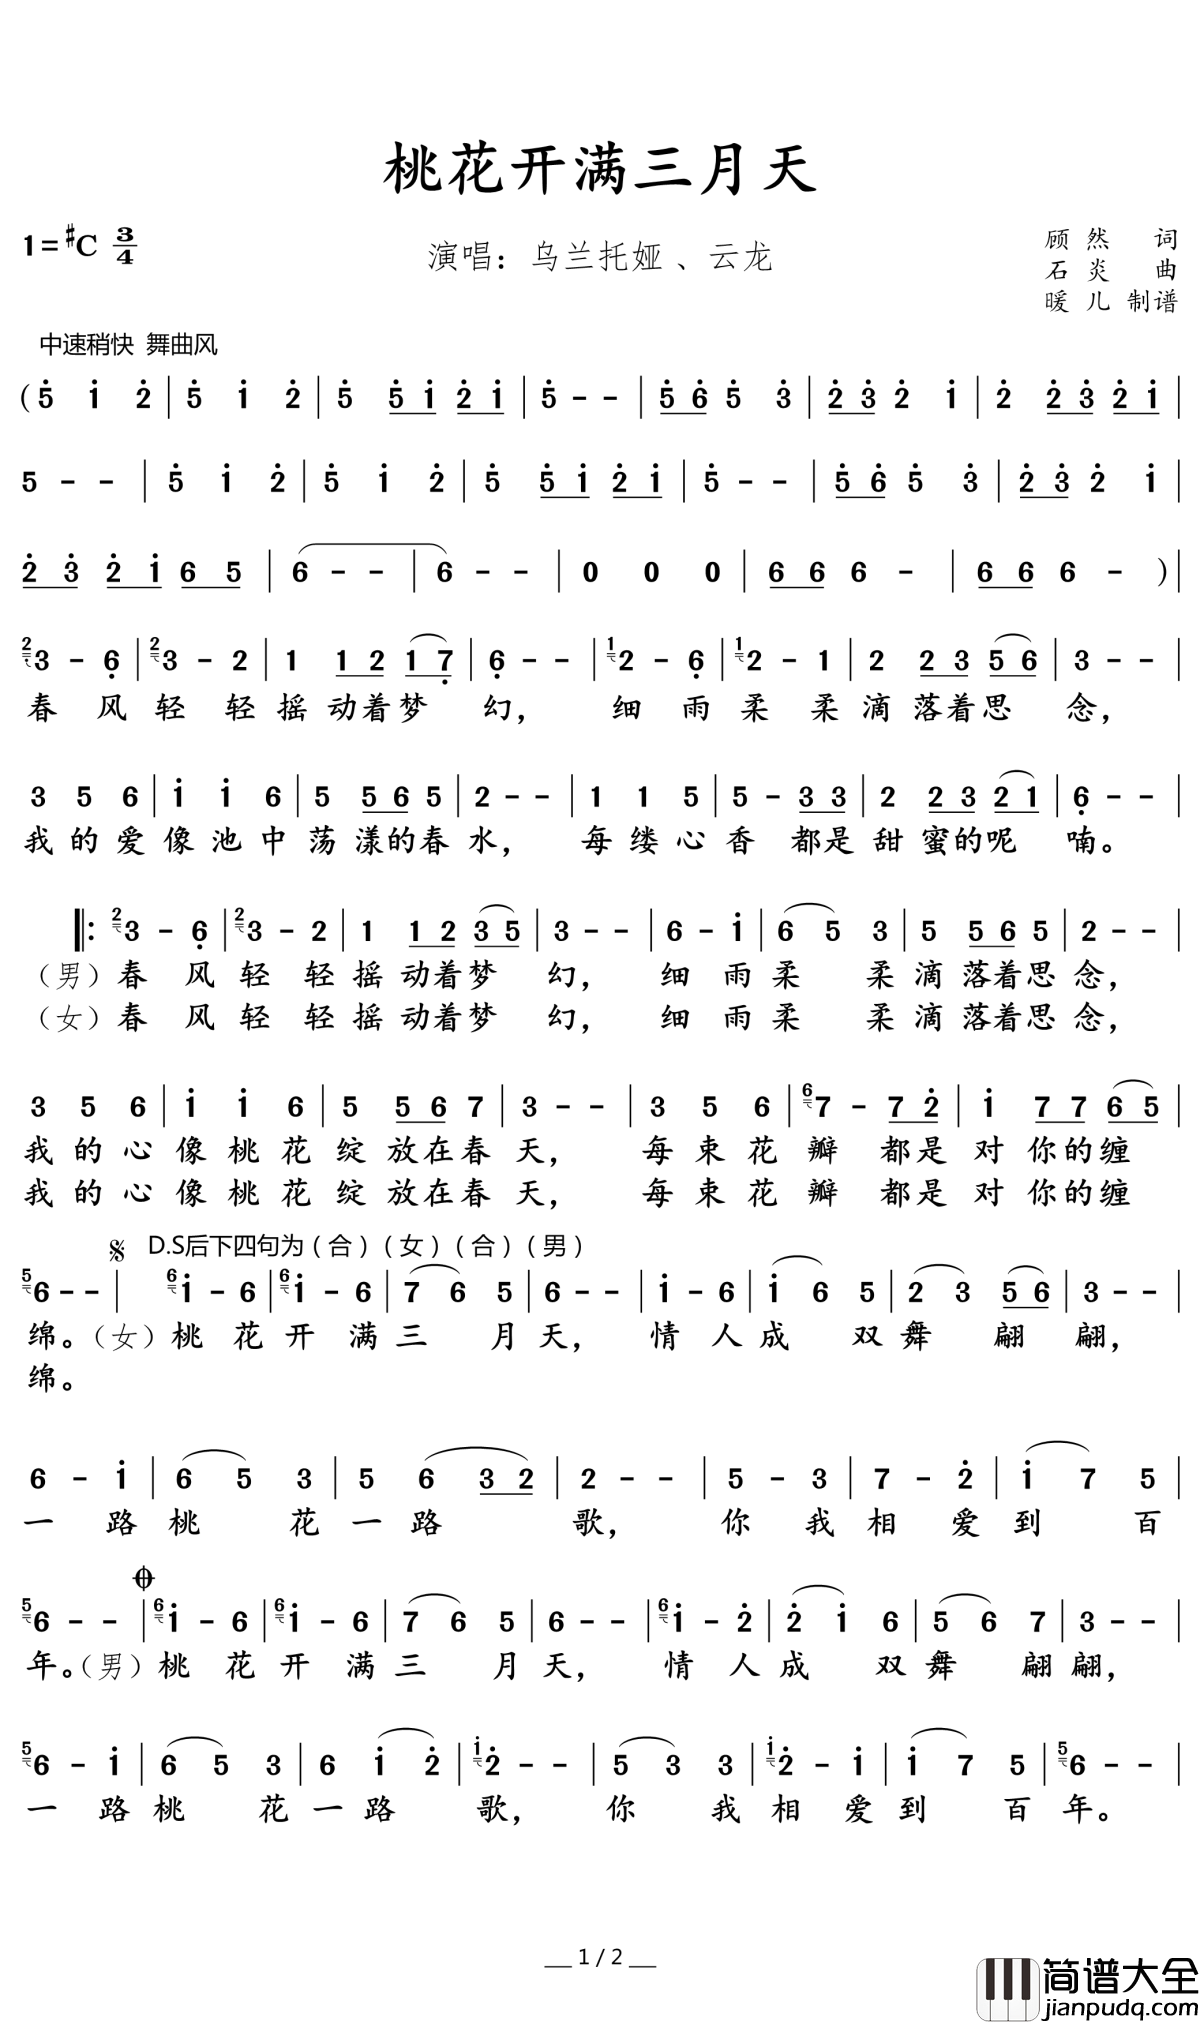 桃花开满三月天
1=#C 3/4
演唱：乌兰托娅、云龙
顾然 词
石炎 曲
暖儿 制谱
中速稍快 舞曲风
(5̇ 1̇ 2̇ | 5̇ 1̇ 2̇ | 5̇ 5̇ 1̇ 2̇ 1̇ | 5̇ - - | 5̇ 6̇ 5̇ 3̇ | 2̇ 3̇ 2̇ 1̇ | 2̇ 2̇ 3̇ 2̇ 1̇ |
5 - - | 5̇ 1̇ 2̇ | 5̇ 1̇ 2̇ | 5̇ 5̇ 1̇ 2̇ 1̇ | 5̇ - - | 5̇ 6̇ 5̇ 3̇ | 2̇ 3̇ 2̇ 1̇ |
2̇ 3̇ 2̇ 1̇ 6 5 | 6 - - | 6 - - | 0 0 0 | 6 6 6 - | 6 6 6 - ) |
2 3 - 6̣ | 2 3 - 2 | 1 1 2 1 7̣ | 6̣ - - | 1 2 - 6̣ | 1 2 - 1 | 2 2 3 5 6 | 3 - - |
春 风 轻 轻 摇 动着梦 幻， 细 雨 柔 柔 滴 落着思 念，
3 5 6 | 1̇ 1̇ 6 | 5 5 6 5 | 2 - - | 1 1 5 | 5 - 3 3 | 2 2 3 2 1 | 6̣ - - |
我 的 爱 像 池 中 荡 漾的春 水， 每 缕 心 香 都是 甜 蜜的呢 喃。
‖: 2 3 - 6̣ | 2 3 - 2 | 1 1 2 3 5 | 3 - - | 6 - 1̇ | 6 5 3 | 5 5 6 5 | 2 - - |
（男）春 风 轻 轻 摇 动着梦 幻， 细 雨 柔 柔 滴 落着思 念，
（女）春 风 轻 轻 摇 动着梦 幻， 细 雨 柔 柔 滴 落着思 念，
3 5 6 | 1̇ 1̇ 6 | 5 5 6 7 | 3 - - | 3 5 6 | 6 7 - 7 2̇ | 1̇ 7 7 6 5 |
我 的 心 像 桃 花 绽 放在春 天， 每 束 花 瓣 都是 对 你的缠
我 的 心 像 桃 花 绽 放在春 天， 每 束 花 瓣 都是 对 你的缠
𝄋 D.S后下四句为（合）（女）（合）（男）
5 6 - - | 6 1̇ - 6 | 6 1̇ - 6 | 7 6 5 | 6 - - | 1̇ - 6 | 1̇ 6 5 | 2 3 5 6 | 3 - - |
绵。（女）桃 花 开 满 三 月 天， 情 人 成 双 舞 翩 翩，
绵。
6 - 1̇ | 6 5 3 | 5 6 3 2 | 2 - - | 5 - 3 | 7 - 2̇ | 1̇ 7 5 |
一 路 桃 花 一 路 歌， 你 我 相 爱 到 百
𝄌
5 6 - - | 6 1̇ - 6 | 6 1̇ - 6 | 7 6 5 | 6 - - | 6 1̇ - 2̇ | 2̇ 1̇ 6 | 5 6 7 | 3 - - |
年。（男）桃 花 开 满 三 月 天， 情 人 成 双 舞 翩 翩，
5 6 - 1̇ | 6 5 3 | 6 1̇ 2̇ | 1̇ 2̇ - - | 5 3 3 | 1̇ 2̇ - 1̇ | 1̇ 7 5 | 5 6 - - |
一 路 桃 花 一 路 歌， 你 我 相 爱 到 百 年。
1 / 2
简谱大全
jianpudq.com